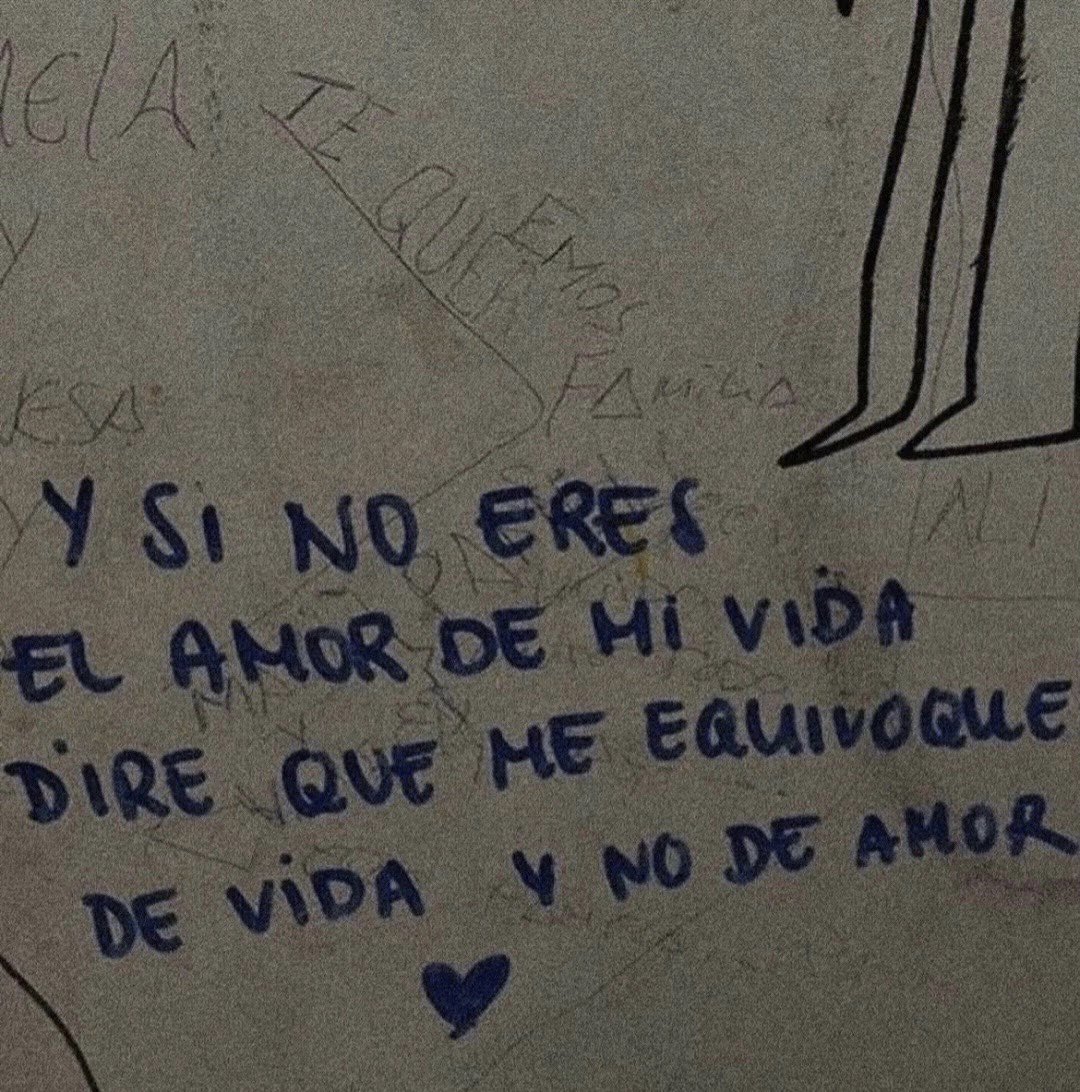 TE QUEREMOS
FAMILIA
ALI
Y SI NO ERES
EL AMOR DE MI VIDA
DIRE QUE ME EQUIVOQUE
DE VIDA Y NO DE AMOR